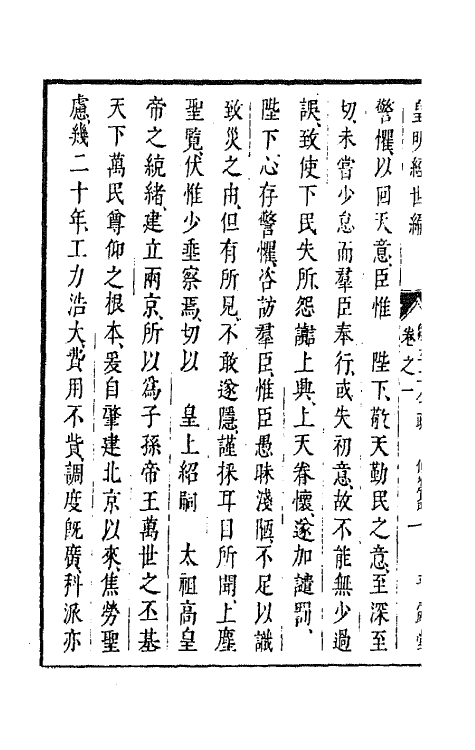 皇明經世編 卷之一
警懼、以回天意、臣惟 陛下、敬天勤民之意、至深至
切、未嘗少怠而羣臣奉行、或失初意、故不能無少過
誤、致使下民失所、怨讟上興、上天眷懷、遂加譴罰、
陛下、心存警懼、咨訪羣臣、惟臣愚昧淺陋、不足以識
致災之由、但有所見、不敢遂隱、謹採耳目所聞、上塵
聖覽、伏惟少垂察焉、切以 皇上紹嗣 太祖高皇
帝之統緒、建立兩京、所以爲子孫帝王萬世之丕基
天下萬民尊仰之根本、爰自肇建北京以來、焦勞聖
慮、幾二十年、工力浩大、費用不貲、調度旣廣、科派亦